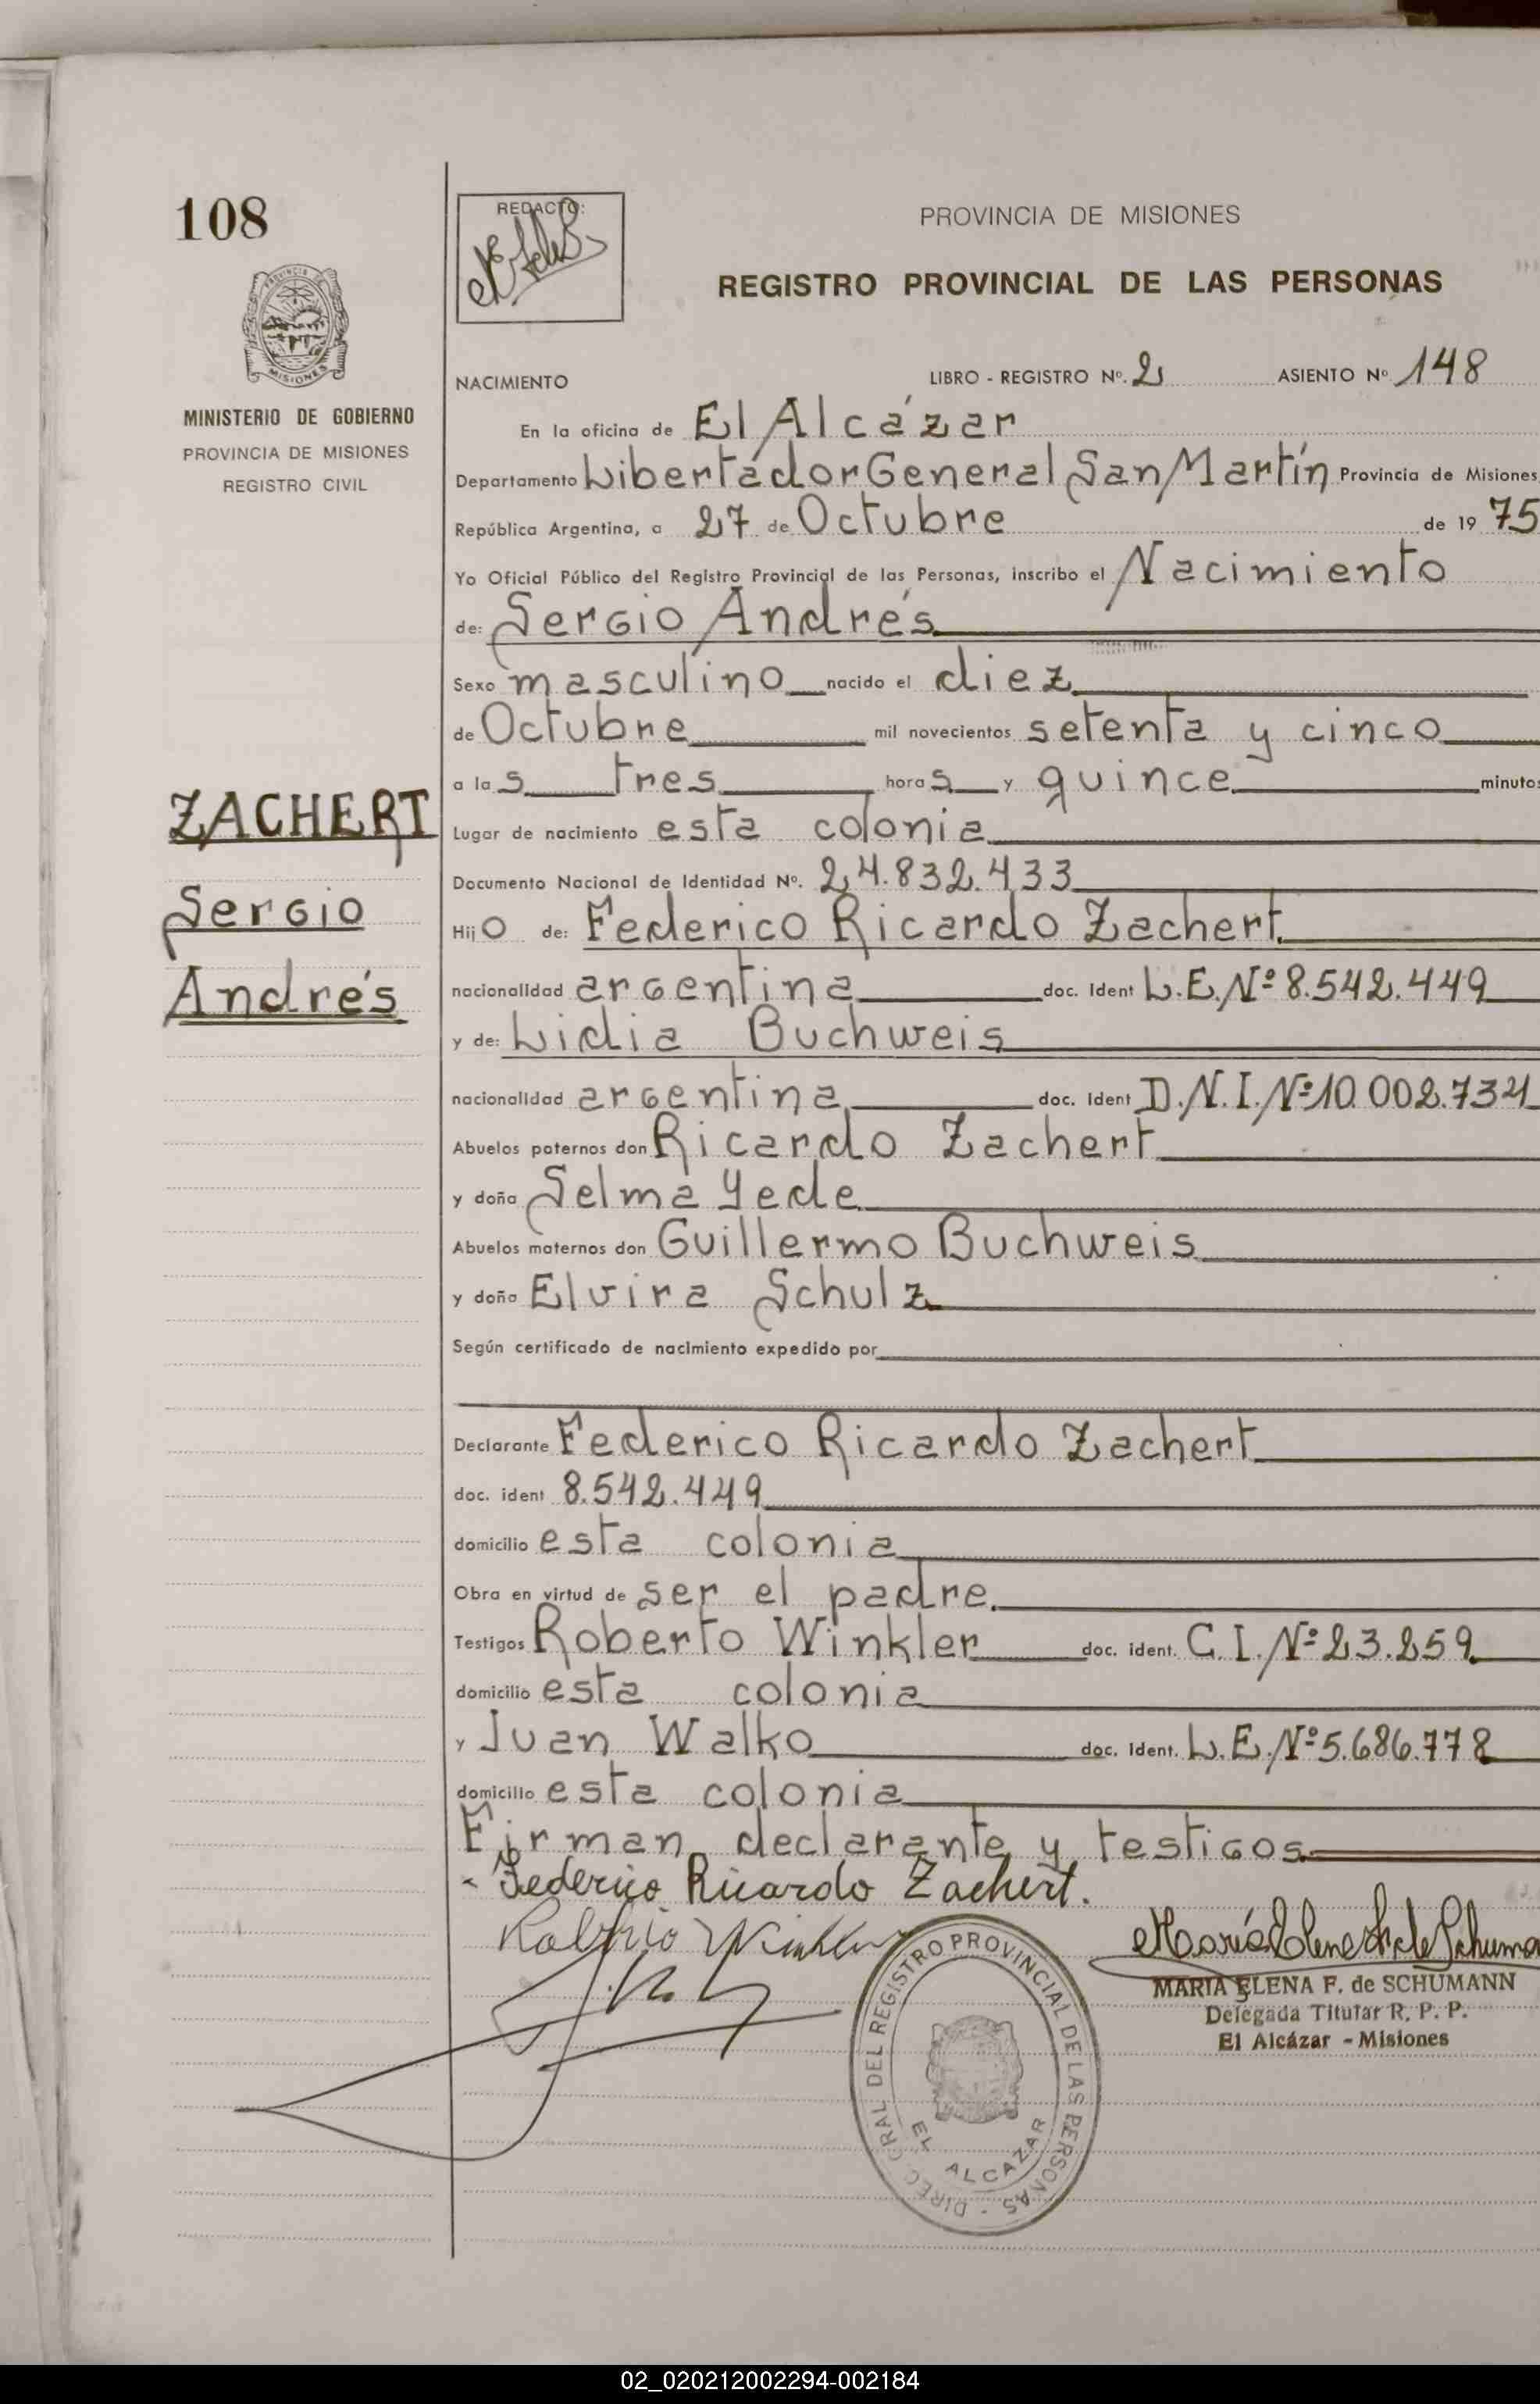 108
REDACTO:
PROVINCIA DE MISIONES
REGISTRO PROVINCIAL DE LAS PERSONAS
MISIONES
MINISTERIO DE GOBIERNO
PROVINCIA DE MISIONES
REGISTRO CIVIL
NACIMIENTO LIBRO - REGISTRO Nº. 2 ASIENTO Nº 148
En la oficina de El Alcázar
Departamento Libertador General San Martín Provincia de Misiones
República Argentina, a 27 de Octubre de 19 75
Yo Oficial Público del Registro Provincial de las Personas, inscribo el Nacimiento
de: Sergio Andrés
Sexo masculino nacido el diez
de Octubre mil novecientos setenta y cinco
a las tres horas y quince minutos
ZACHERT
Sergio
Andrés
Lugar de nacimiento esta colonia
Documento Nacional de Identidad Nº. 24.832.433
Hijo de: Federico Ricardo Zachert
nacionalidad argentina doc. Ident L.E. Nº 8.542.449
y de: Lidia Buchweis
nacionalidad argentina doc. Ident D.N.I. Nº 10.002.734
Abuelos paternos don Ricardo Zachert
y doña Selma Yede
Abuelos maternos don Guillermo Buchweis
y doña Elvira Schulz
Según certificado de nacimiento expedido por
Declarante Federico Ricardo Zachert
doc. ident 8.542.449
domicilio esta colonia
Obra en virtud de ser el padre.
Testigos Roberto Winkler doc. ident. C.I. Nº 23.259
domicilio esta colonia
y Juan Walko doc. Ident. L.E. Nº 5.686.778
domicilio esta colonia
Firman declarante y testigos
Federico Ricardo Zachert.
MARIA ELENA F. de SCHUMANN
Delegada Titular R. P. P.
El Alcázar - Misiones
DIREC. GRAL DEL REGISTRO PROVINCIAL DE LAS PERSONAS -
EL ALCAZAR
02_020212002294-002184